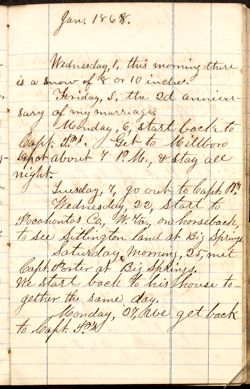 Jan. 1868.
Wednesday, 1, this morning there
is a snow of 8 or 10 inches.
Friday, 3, the 2d anniver-
sary of my marriage.
Monday, 6, start back to
Capt. P's. Get to Millboro
depot about 7 P.M., & stay all
night.
Tuesday, 7, go out to Capt. P's
Wednesday, 22, start to
Pocahontas Co., W. Va., on horseback,
to see Littington land at Big Springs
Saturday morning, 25, met
Capt. Porter at Big Springs.
We start back to his house to-
gether the same day.
Monday, 27, we get back
to Capt. P's